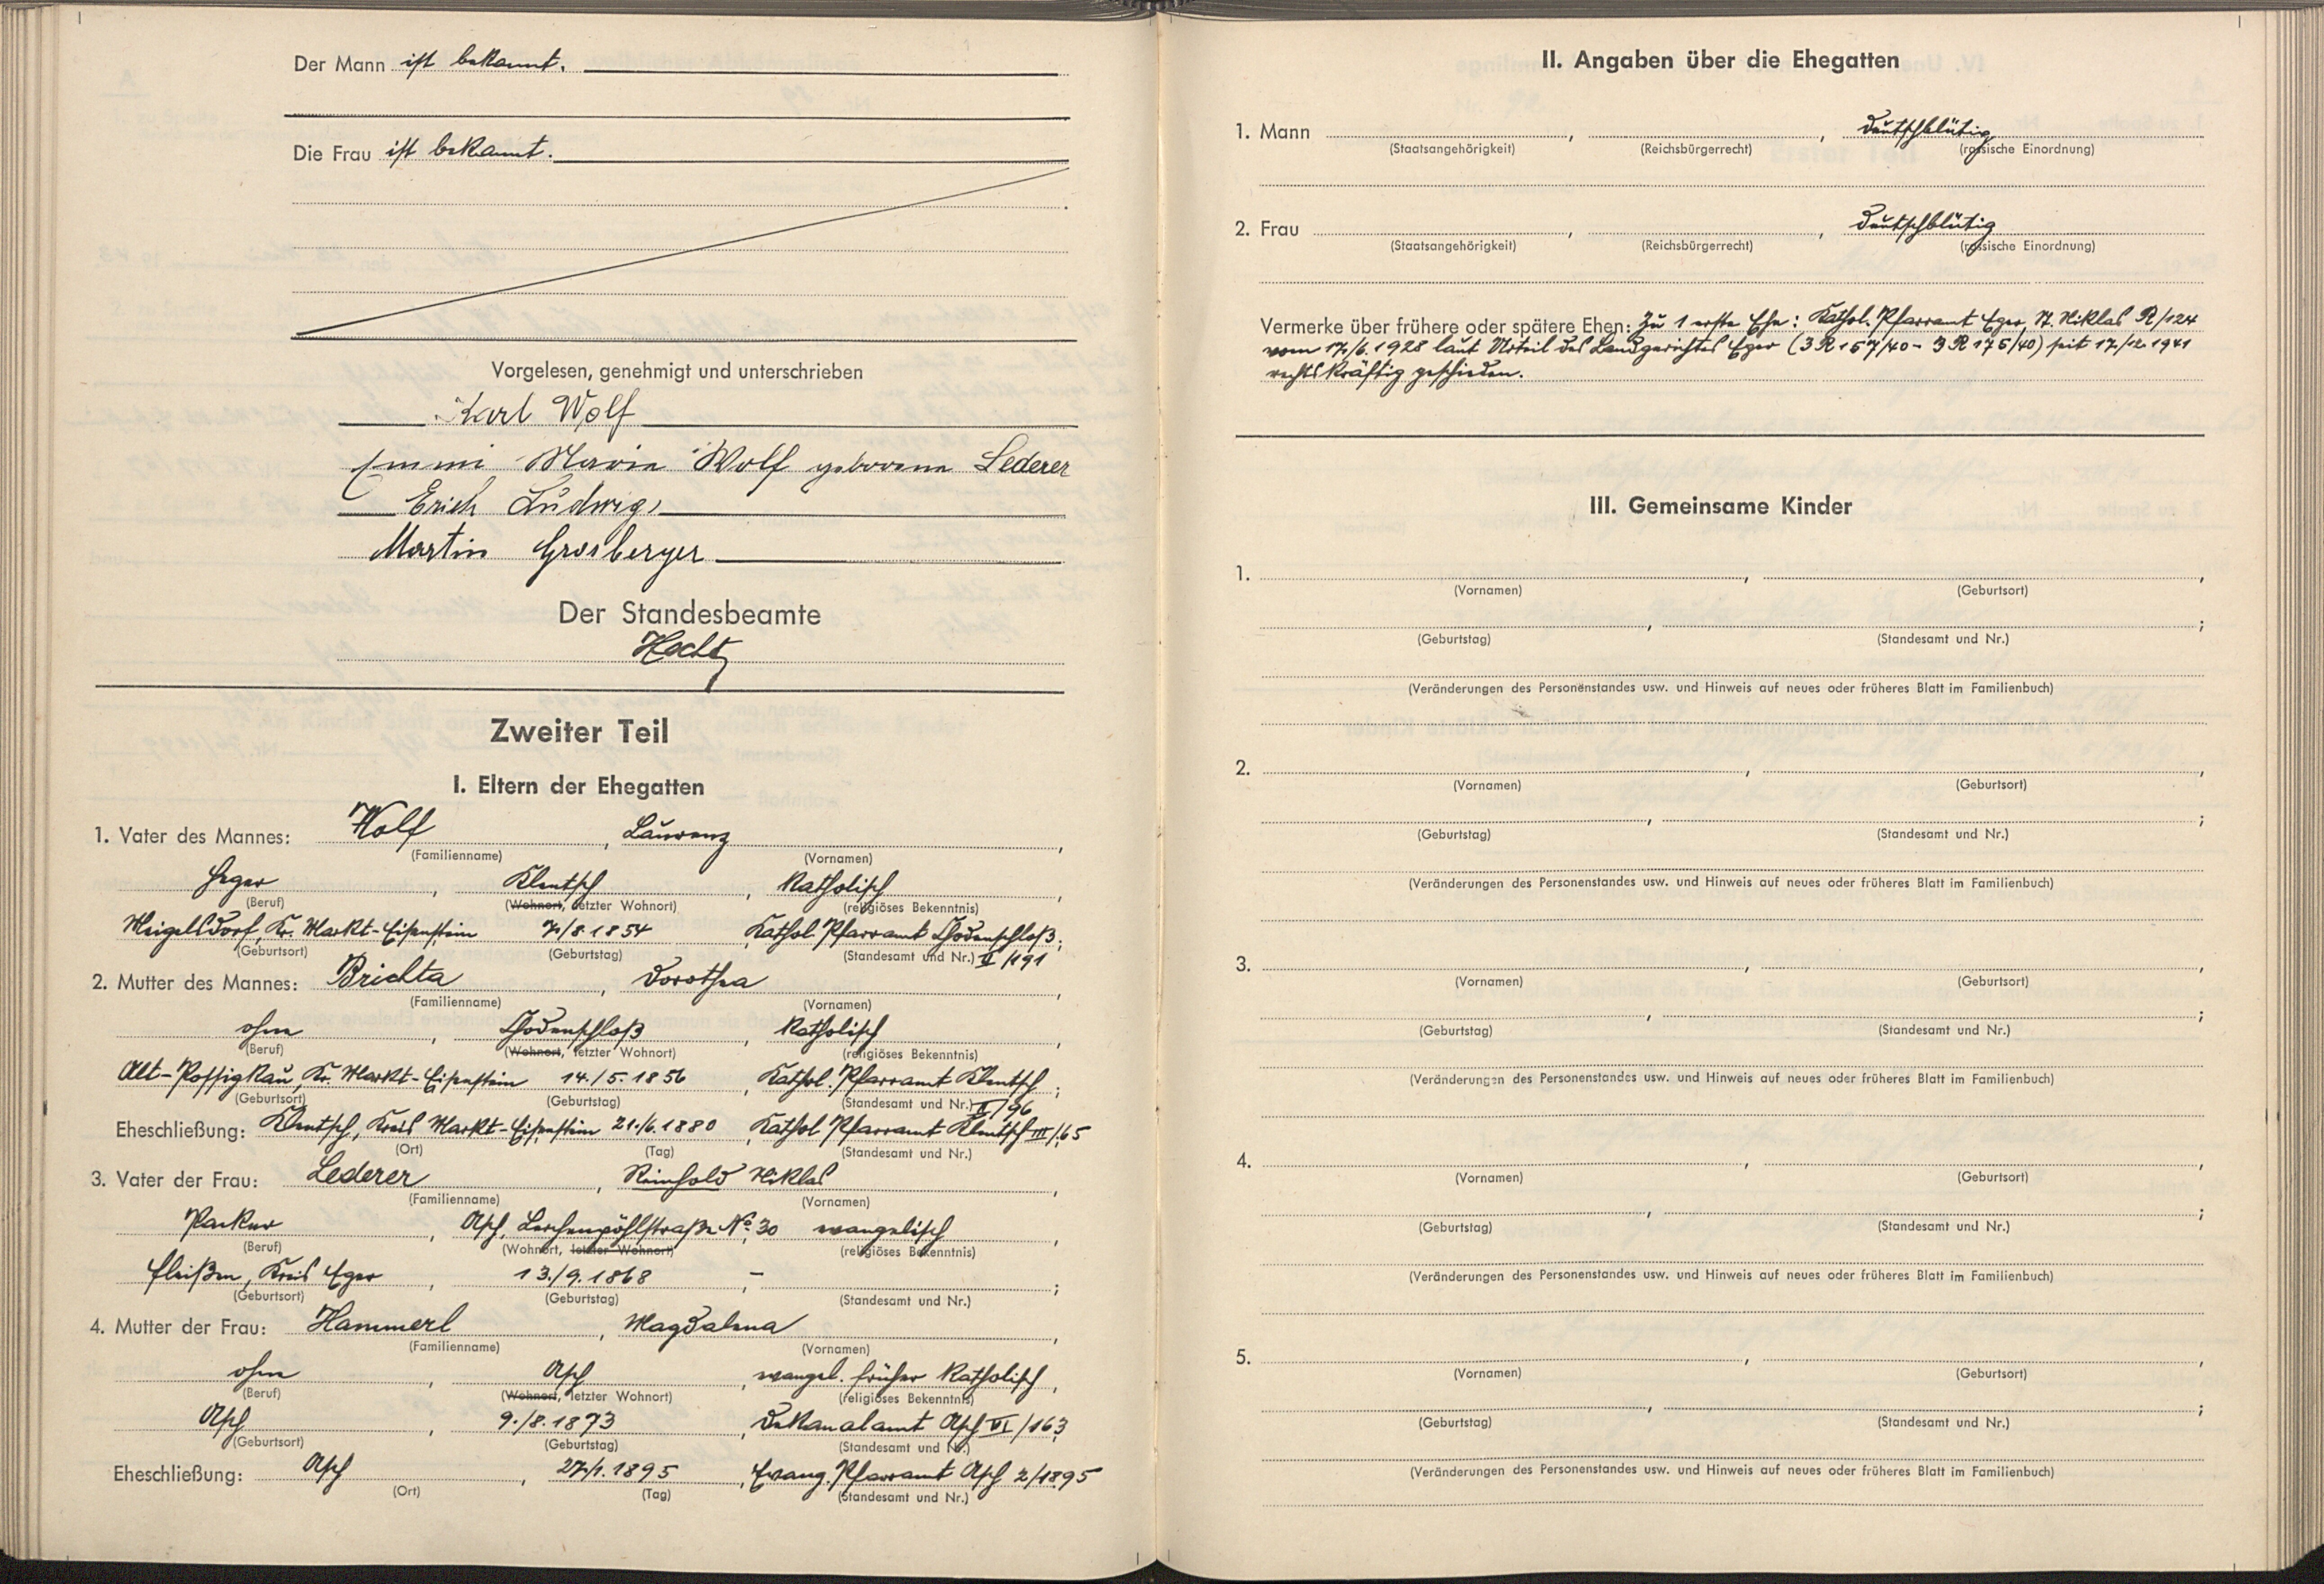 Der Mann ist bekannt.
Die Frau ist bekannt.
Vorgelesen, genehmigt und unterschrieben
Karl Wolf
Emmi Maria Wolf geborene Lederer
Erich Ludwig
Martin Grosberger
Der Standesbeamte
Hecht
Zweiter Teil
I. Eltern der Ehegatten
1. Vater des Mannes: Wolf, Laurenz,
(Familienname) (Vornamen)
Heger, Klentsch, katholisch,
(Beruf) (Wohnort, letzter Wohnort) (religiöses Bekenntnis)
Meigelsdorf, Kr. Markt-Eisenstein 7./8.1854, Kathol. Pfarramt Chodenschloß;
(Geburtsort) (Geburtstag) (Standesamt und Nr.) II/191
2. Mutter des Mannes: Brichta, Dorothea,
(Familienname) (Vornamen)
ohne, Chodenschloß, katholisch,
(Beruf) (Wohnort, letzter Wohnort) (religiöses Bekenntnis)
Alt-Possigkau, Kr. Markt-Eisenstein 14./5.1856, Kathol. Pfarramt Klentsch;
(Geburtsort) (Geburtstag) (Standesamt und Nr.) II/96
Eheschließung: Klentsch, Kreis Markt-Eisenstein 21./6.1880, Kathol Pfarramt Klentsch III/65
(Ort) (Tag) (Standesamt und Nr.)
3. Vater der Frau: Lederer, Reinhold Niklas,
(Familienname) (Vornamen)
Packer, Asch, Lerchenpöhlstraße No. 30 evangelisch,
(Beruf) (Wohnort, letzter Wohnort) (religiöses Bekenntnis)
Fleißen, Kreis Eger, 13./9.1868, -;
(Geburtsort) (Geburtstag) (Standesamt und Nr.)
4. Mutter der Frau: Hammerl, Magdalena,
(Familienname) (Vornamen)
ohne, Asch, evangel. früher katholisch,
(Beruf) (Wohnort, letzter Wohnort) (religiöses Bekenntnis)
Asch, 9./8.1873, Dekanalamt Asch VI/163;
(Geburtsort) (Geburtstag) (Standesamt und Nr.)
Eheschließung: Asch, 27./1.1895, Evang. Pfarramt Asch 2/1895
(Ort) (Tag) (Standesamt und Nr.)
II. Angaben über die Ehegatten
1. Mann , , deutschblütig
(Staatsangehörigkeit) (Reichsbürgerrecht) (rassische Einordnung)
2. Frau , , deutschblütig
(Staatsangehörigkeit) (Reichsbürgerrecht) (rassische Einordnung)
Vermerke über frühere oder spätere Ehen: Zu 1 erste Ehe: Kathol. Pfarramt Eger, St. Niklas R/124
vom 17./6.1928 laut Urteil des Landgerichtes Eger (3 R 157/40 - 3 R 175/40) seit 17./12.1941
rechtskräftig geschieden.
III. Gemeinsame Kinder
1. , ,
(Vornamen) (Geburtsort)
, ;
(Geburtstag) (Standesamt und Nr.)
(Veränderungen des Personenstandes usw. und Hinweis auf neues oder früheres Blatt im Familienbuch)
2. , ,
(Vornamen) (Geburtsort)
, ;
(Geburtstag) (Standesamt und Nr.)
(Veränderungen des Personenstandes usw. und Hinweis auf neues oder früheres Blatt im Familienbuch)
3. , ,
(Vornamen) (Geburtsort)
, ;
(Geburtstag) (Standesamt und Nr.)
(Veränderungen des Personenstandes usw. und Hinweis auf neues oder früheres Blatt im Familienbuch)
4. , ,
(Vornamen) (Geburtsort)
, ;
(Geburtstag) (Standesamt und Nr.)
(Veränderungen des Personenstandes usw. und Hinweis auf neues oder früheres Blatt im Familienbuch)
5. , ,
(Vornamen) (Geburtsort)
, ;
(Geburtstag) (Standesamt und Nr.)
(Veränderungen des Personenstandes usw. und Hinweis auf neues oder früheres Blatt im Familienbuch)